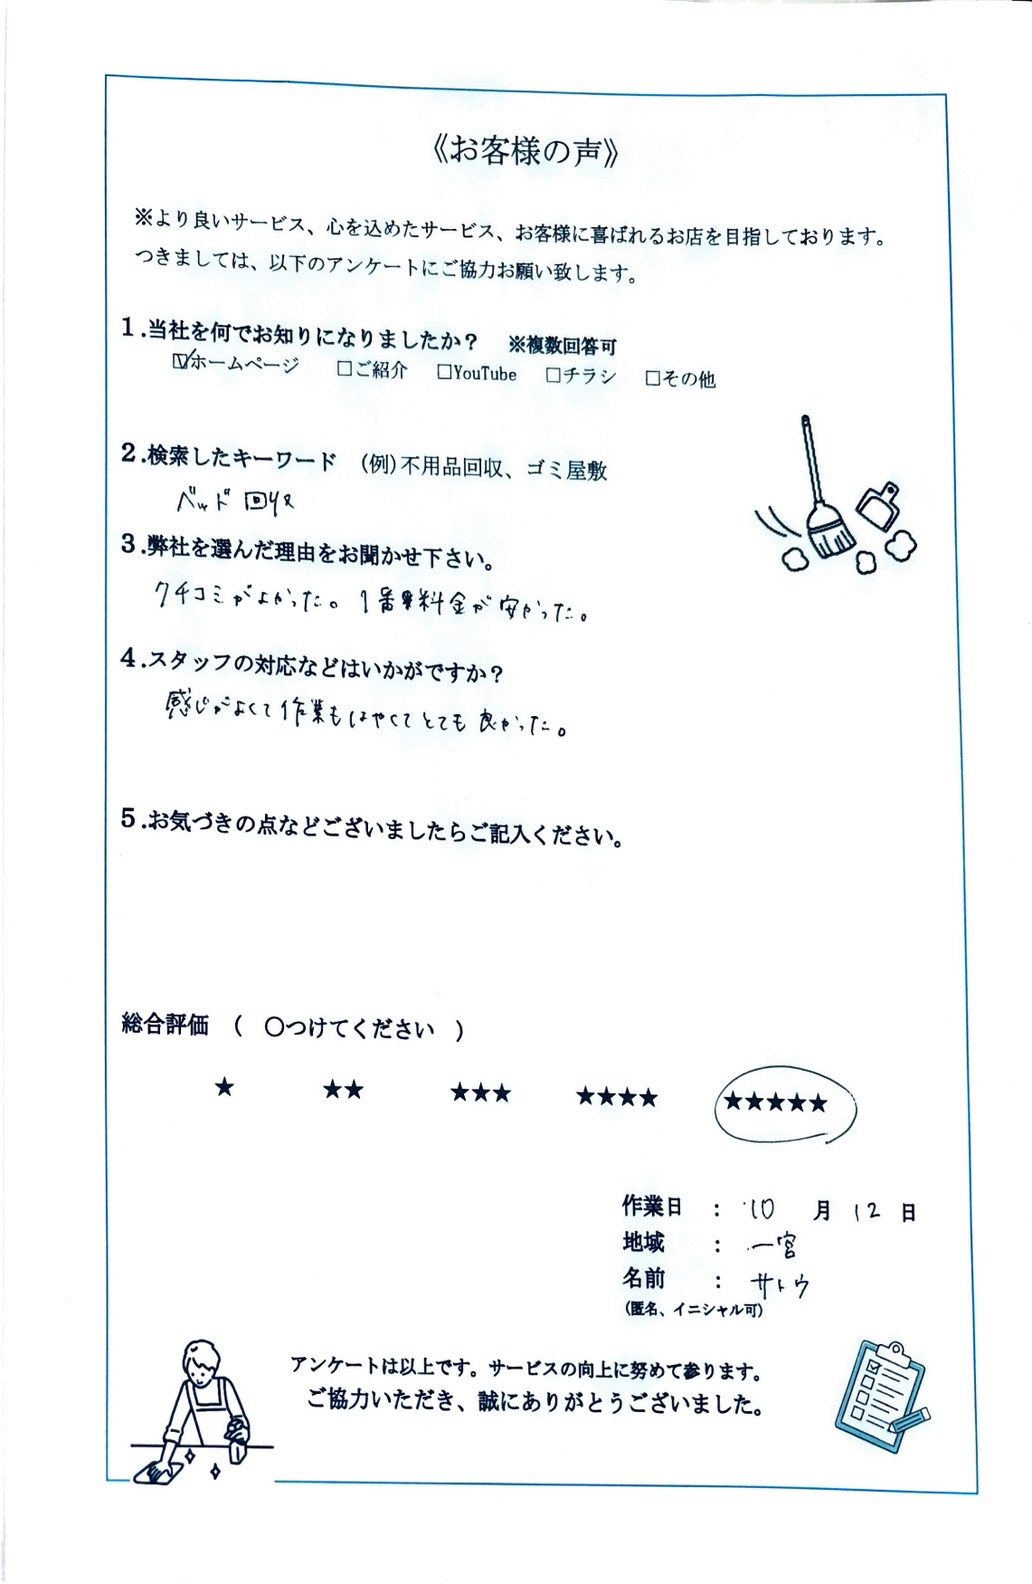 《お客様の声》
※より良いサービス、心を込めたサービス、お客様に喜ばれるお店を目指しております。
つきましては、以下のアンケートにご協力お願い致します。
1.当社を何でお知りになりましたか？ ※複数回答可
☑ホームページ □ご紹介 □YouTube □チラシ □その他
2.検索したキーワード (例)不用品回収、ゴミ屋敷
ベッド回収
3.弊社を選んだ理由をお聞かせ下さい。
クチコミがよかった。1番料金が安かった。
4.スタッフの対応などはいかがですか？
感じがよくて作業もはやくてとても良かった。
5.お気づきの点などございましたらご記入ください。
総合評価 ( 〇つけてください )
★ ★★ ★★★ ★★★★ ★★★★★
作業日 : 10 月 12 日
地域 : 一宮
名前 : サトウ
(匿名、イニシャル可)
アンケートは以上です。サービスの向上に努めて参ります。
ご協力いただき、誠にありがとうございました。